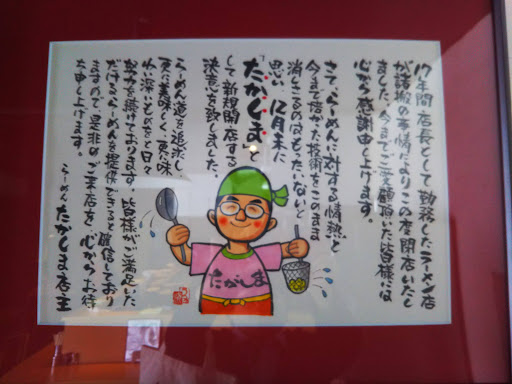 17年間店長として勤務したラーメン店
が諸般の事情によりこの度閉店いたし
ました。今までご愛顧頂いた皆様には
心から感謝申し上げます。
さて、らーめんに対する情熱と
今まで培かった技術をこのまま
消しさるのはもったいないと
思い、12月末に
「たかしま」と
して新規開店する
決意を致しました。
らーめん道を追求し
更に美味しく、更に味
わい深いものをと日々
努力を続けております。皆様がご満足いた
だけるらーめんを提供できると確信しており
ますので是非ご来店を、心からお待
ち申し上げます。
らーめん たかしま店主
たかしま